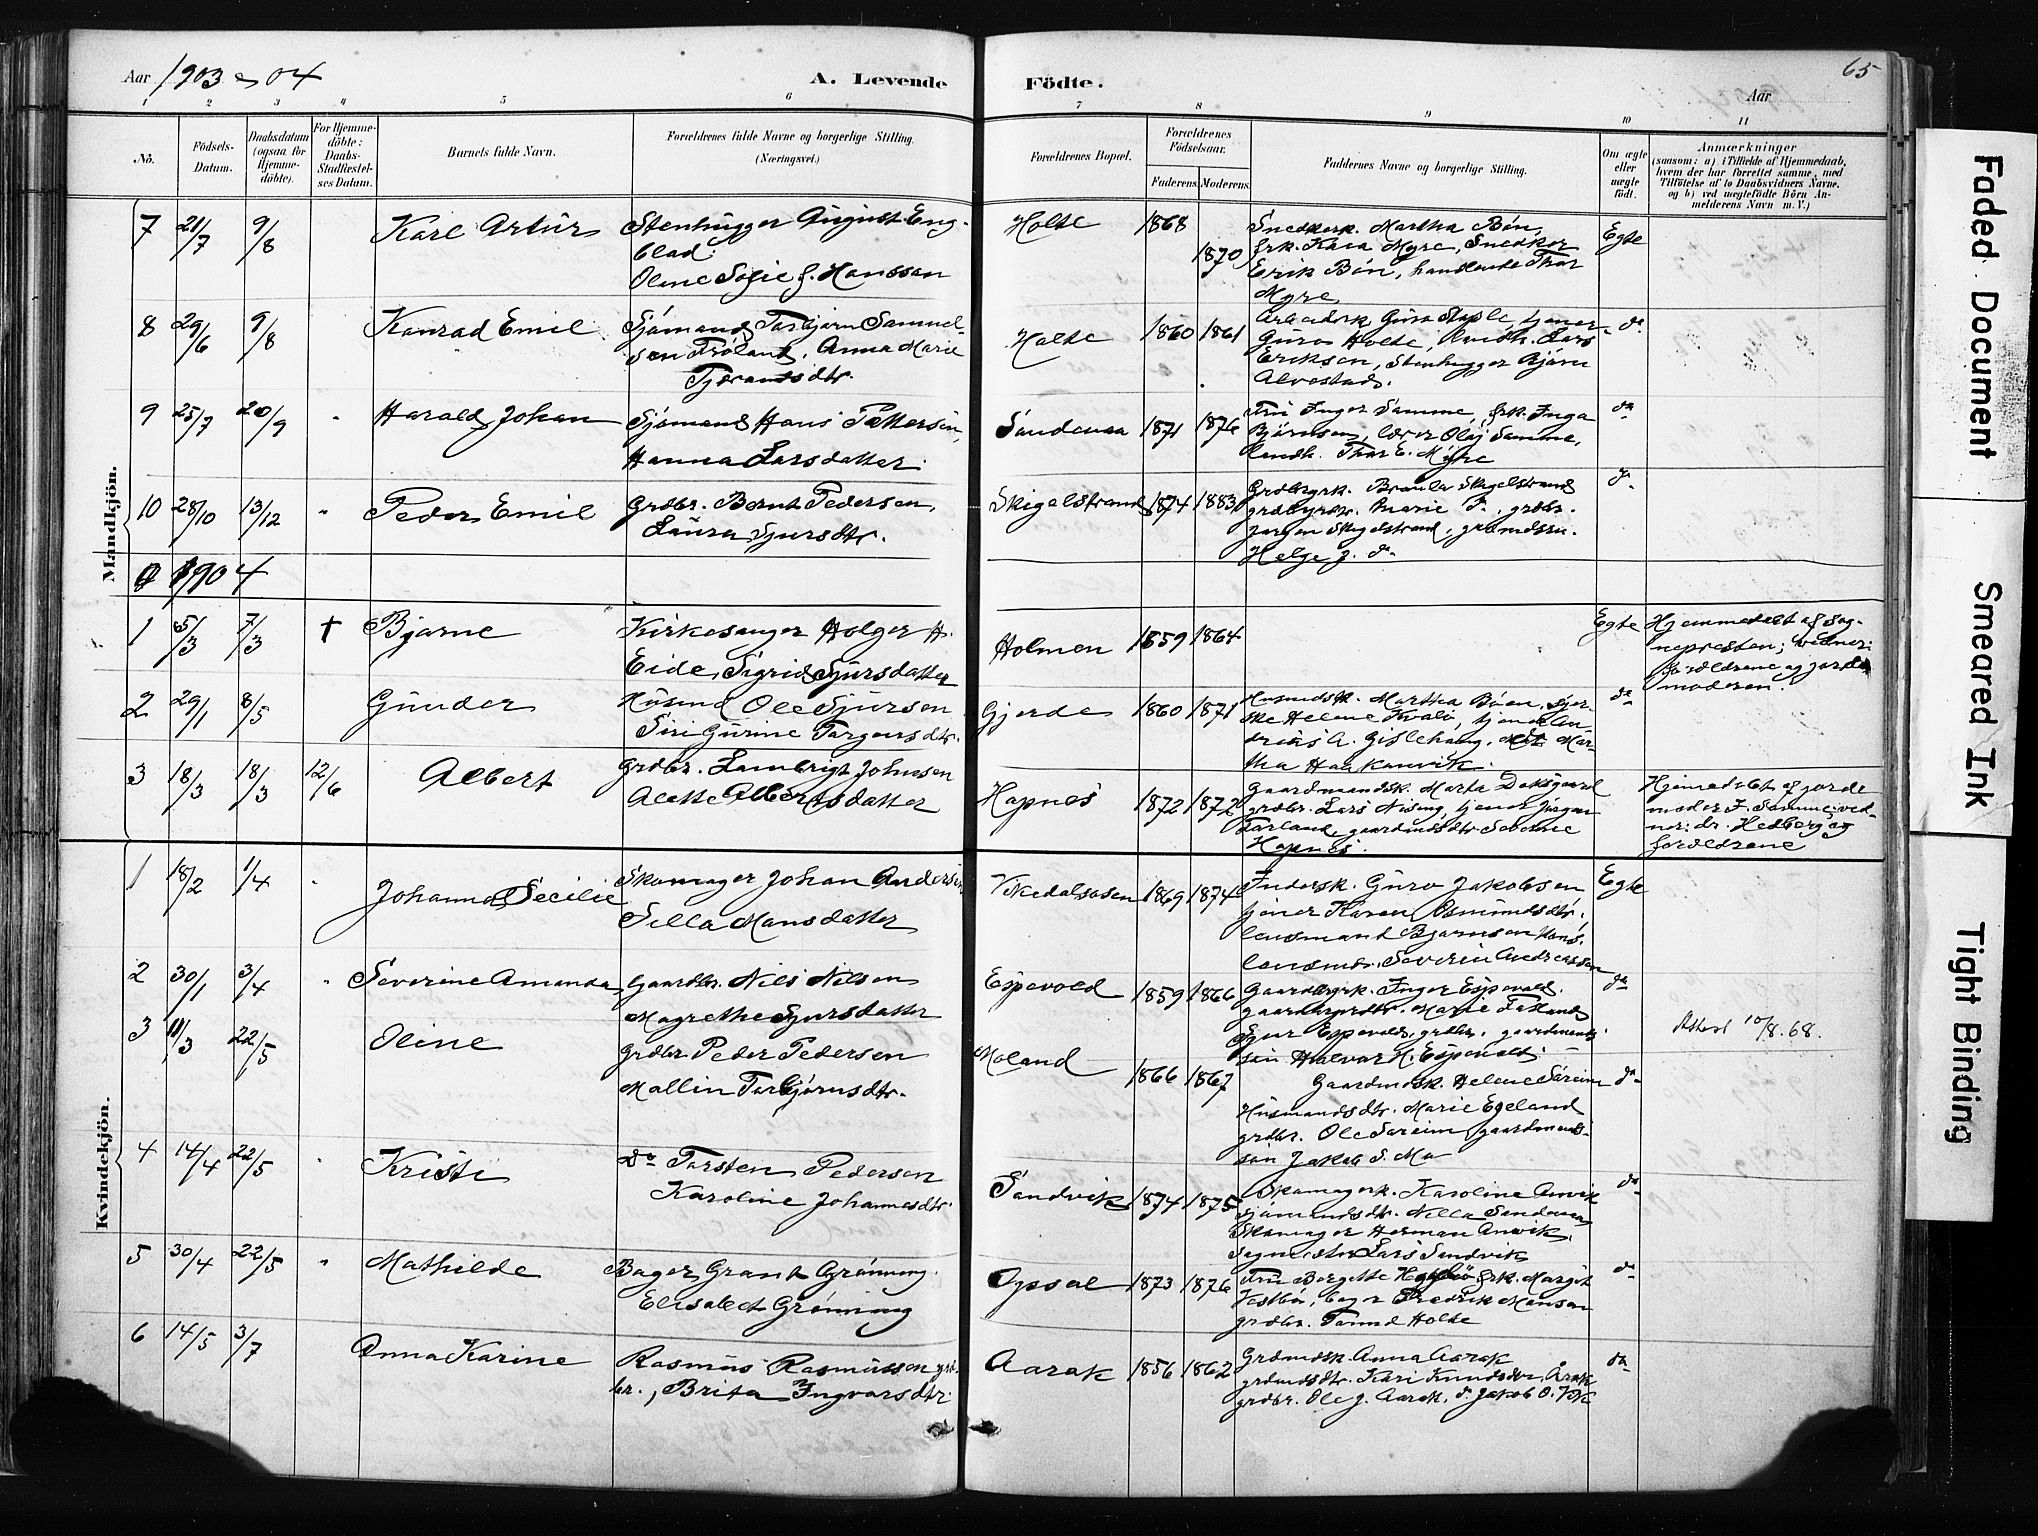 Aar 1903 & 04
A. Levende
Födte.
65
Aar
1 2 3 4 5 6 7 8 9 10 11
No.
Födsels-
Datum.
Daabsdatum
(ogsaa for
Hjemme-
döbte).
For Hjemme-
döbte:
Daabs-
Stadfæstel-
ses Datum.
Barnets fulde Navn.
Forældrenes fulde Navne og borgerlige Stilling.
(Næringsvei.)
Forældrenes Bopæl.
Forældrenes
Födselsaar.
Faderens. Moderens.
Faddernes Navne og borgerlige Stilling.
Om ægte
eller
uægte
födt.
Anmærkninger
(saasom: a) i Tilfælde af Hjemmedaab,
hvem der har forrettet samme, med
Tilföielse af to Daabsvidners Navne.
og b) ved uægtefödte Börn An-
melderens Navn m. V.)
Mandkjön.
7 21/7 9/8 Karl Artur
Stenhugger August Eng-
blad
Oline Sofie f. Hanssen
Holte 1868 1870
Snedkerk. Martha Bøn,
frk. Kaia Myre, Snedker
Erik Bøn, handlende Thor
Myre
Egte
8 29/6 9/8 Konrad Emil
Sjømand Torbjørn Samuel-
sen Frøland, Anna Marie
Tjerandsdtr.
Holte 1860 1861
Arbeiderk. Guro Aaple, tjener
Guro Holte, Lars
Eriksen, Stenhugger Bjørn
Alvestad.
do
9 25/7 20/9 " Harald Johan
Sjømand Hans Pettersen,
Hanna Larsdatter
Sandenaa 1871 1876
Fru Inger Samme, frk. Inga
Bjørnsen, lærer Olaf Samme,
landh. Thor E. Myre
do
10 28/10 13/12 " Peder Emil
Grdbr. Bernt Pedersen,
Laura Sjursdtr.
Skigelstrand 1874 1883
Grdbrgrk. Skigelstrand
Marie P., grdbr.
Jørgen Skigelstrand, grdmdssn.
Helge J. do
do
1904
1 5/3 7/3 † Bjarne
Kirkesanger Holger H.
Eide, Sigrid Sjursdatter
Holmen 1859 1864
Egte
Hjemmedøbt af Sog-
nepresten; vidner:
forældrene og jorde-
moderen.
2 29/1 8/5 Gunder
Husmd Ole Sjursen
Siri Gurine Torgersdtr.
Gjerde 1860 1871
Husmdsk. Martha Bøen,
Helene Kvalø, tjener An-
dreas A. Gislehaug, Mar-
tha Haakonvik.
do
3 18/3 18/3 12/6 Albert
Grdbr. Lambrigt Johnsen
Alette Albertsdatter
Hapnes 1872 1872
Gaardmandsk. Marta Doksgaard
grdbr. Lars Nising, tjener Jørgen
Tarland, gaardmdsdtr Severine
Hapnes.
Hjemedøbt af jorde
moder F. Samme; vid-
ner: dr. Hedberg og
forældrene
Kvindekjön.
1 18/2 1/4 Johanna Cecilie
Skomager Johan Andersen
Silla Monsdatter
Vikedalsosen 1869 1874
Indersk. Guro Jakobsen
tjener Karen Osmundsdtr.
lensmand Bjørnsen Hans,
lensmds. Severin Andreassen
Egte
2 30/1 3/4 " Severine Amanda
Gaardbr. Nils Nilsen
Magrethe Sjursdatter
Espevold 1859 1866
Gaardbrgrk. Inger Espevold.
gaardbrgrdtr. Marie Fatland
Sjur Espevold, grdbr. gaardmands-
søn Halvor H. Espevold.
do
3 11/3 22/5 Oline
Grdbr. Peder Pedersen
Mallin Torbjørnsdtr.
Moland 1866 1867
Gaardmdsk. Helene Søreim
Husmandsdtr. Marie Egeland
grdbr. Ole Søreim, gaardmands-
søn Jakob S. Mo
do
Attest 10/8. 68.
4 14/4 22/5 Kristi
Do Torsten Pedersen
Karoline Johannesdtr.
Sandvik 1874 1875
Skomagerk. Karoline Anvik
sjømandsdtr. Nilla Sandenaa
Skomager Herman Anvik,
Lars Sandvik
do
5 30/4 22/5 " Mathilde
Bager Grant Grønning
Elisabet Grønning
Opsal 1873 1876
Fru Bergette frk. Margit
Vestbø, bager Fredrik Monsen
grdbr. Tormod Holte
do
6 14/5 3/7 Anna Karine
Rasmus Rasmussen grd-
br., Brita Ingvarsdtr.
Aarak 1856 1862
Grdmdsk. Anna Aarak
grdmdsdtr. Kari Knudsdtr. Aarak
grdbr. Ole J. Aarak, d. Jakob O. Vik
do
Faded Document
Smeared Ink
Tight Binding